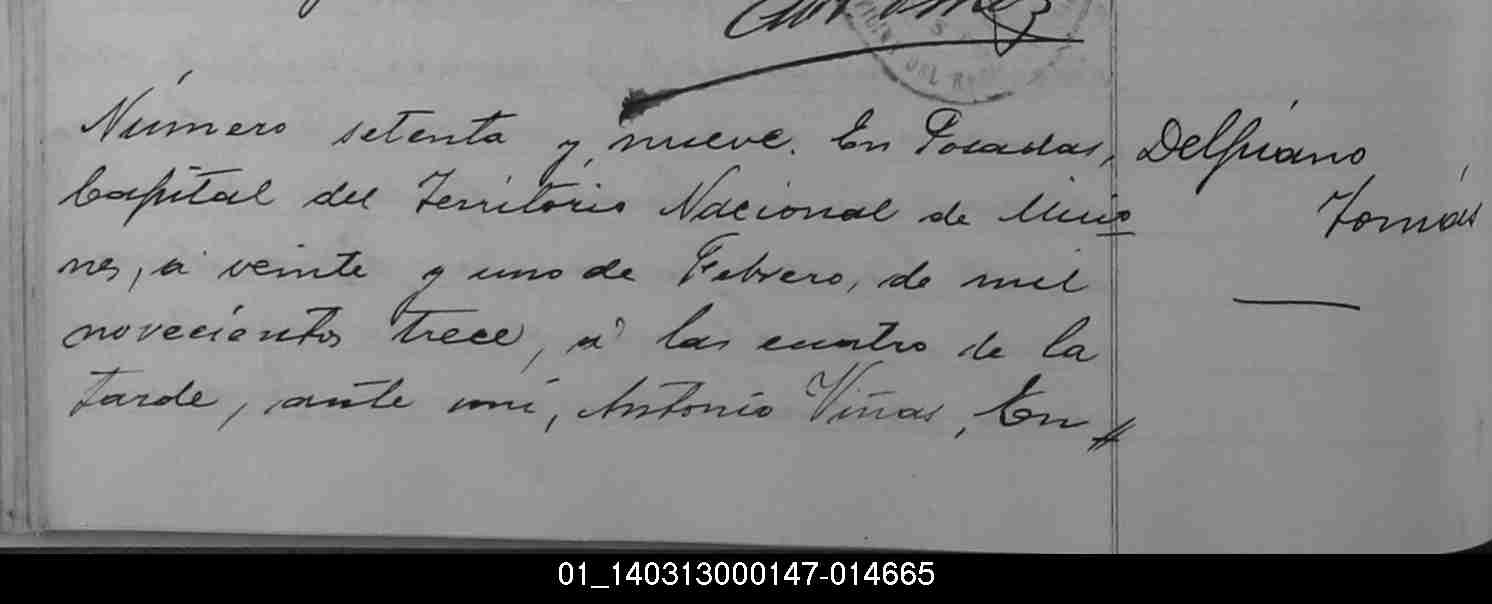 Número setenta y nueve. En Posadas,
Capital del Territorio Nacional de Misio
nes, á veinte y uno de Febrero, de mil
novecientos trece, á las cuatro de la
tarde, ante mí, Antonio Viñas, En
Delpiano
Tomás
01_140313000147-014665